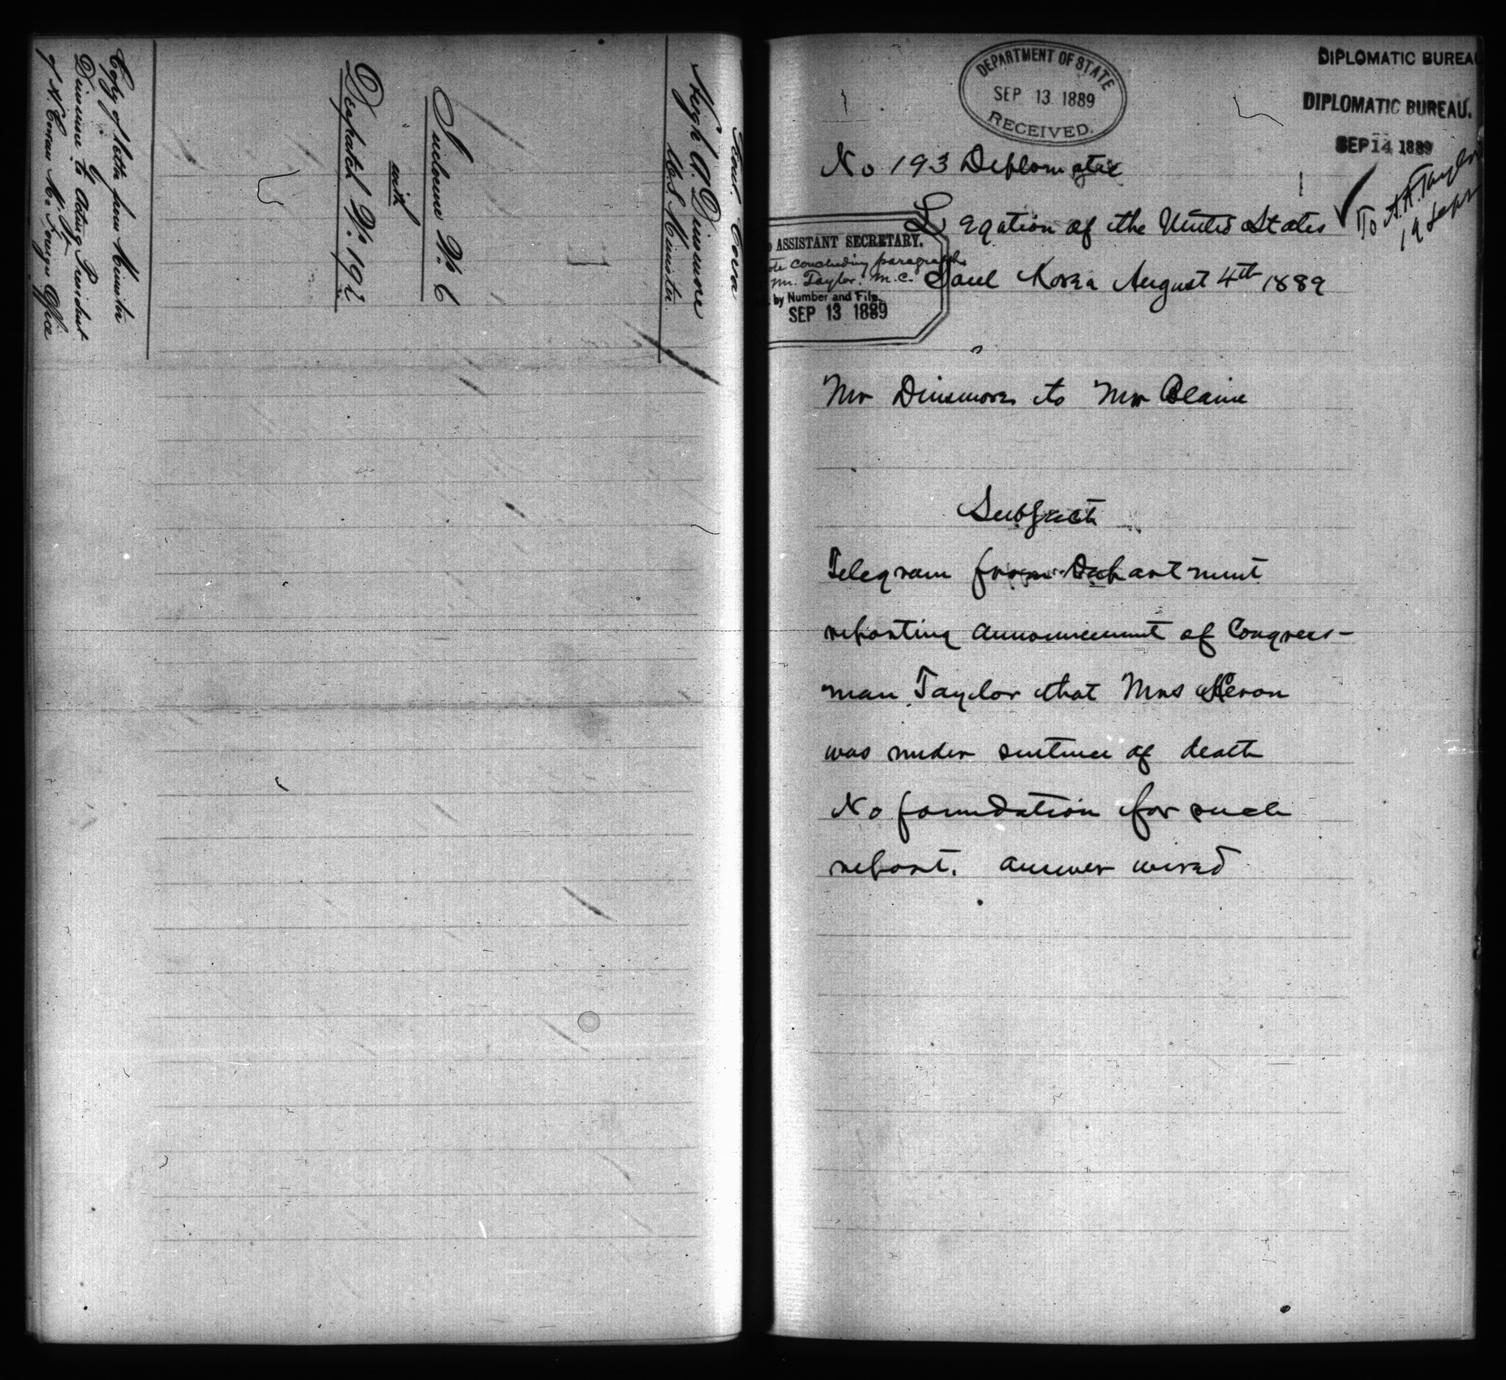 Hugh A. Dinsmore
U.S. Minister
Inclosure No. 6
with
Despatch No. 192
Copy of letter from Minister
Dinsmore to Acting President
of H. Corean M. Foreign Office
DEPARTMENT OF STATE
SEP 13 1889
RECEIVED.
DIPLOMATIC BUREAU
DIPLOMATIC BUREAU.
SEP 14 1889
To A.A. Taylor
19 Sept
No 193 Diplomatic
Legation of the United States
Seoul Korea August 4th 1889
ASSISTANT SECRETARY.
concluding paragraph
Mr. Taylor. M.C.
by Number and File.
SEP 13 1889
Mr Dinsmore to Mr Blaine
Subject
Telegram from Department
reporting announcement of Congress-
man Taylor that Mrs Heron
was under sentence of death
No foundation for such
report. answer wired